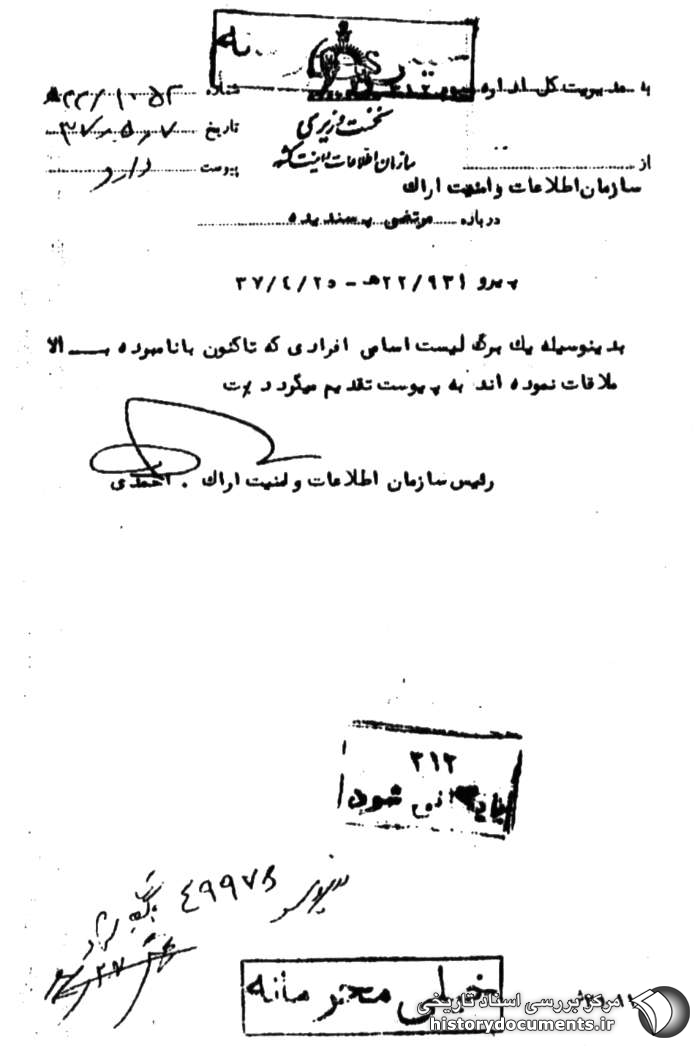 به مدیریت کل اداره سوم ۳۱۲
شماره ۲۲/۱۰۵۲ه‍
نخست وزیری
تاریخ ۳۷/۵/۷
سازمان اطلاعات و امنیت کشور
پیوست دارد
از
سازمان اطلاعات و امنیت اراک
درباره مرتضی پسندیده
پیرو ۲۲/۹۳۱ه‍ - ۳۷/۴/۲۵
بدینوسیله یک برگ لیست اسامی افرادی که تاکنون با نامبرده بالا
ملاقات نموده اند به پیوست تقدیم میگردد
رئیس سازمان اطلاعات و امنیت اراک . احمدی
۳۱۲
بایگانی شود
۴۹۹۷۵
خیلی محرمانه
مرکز بررسی اسناد تاریخی
historydocuments.ir